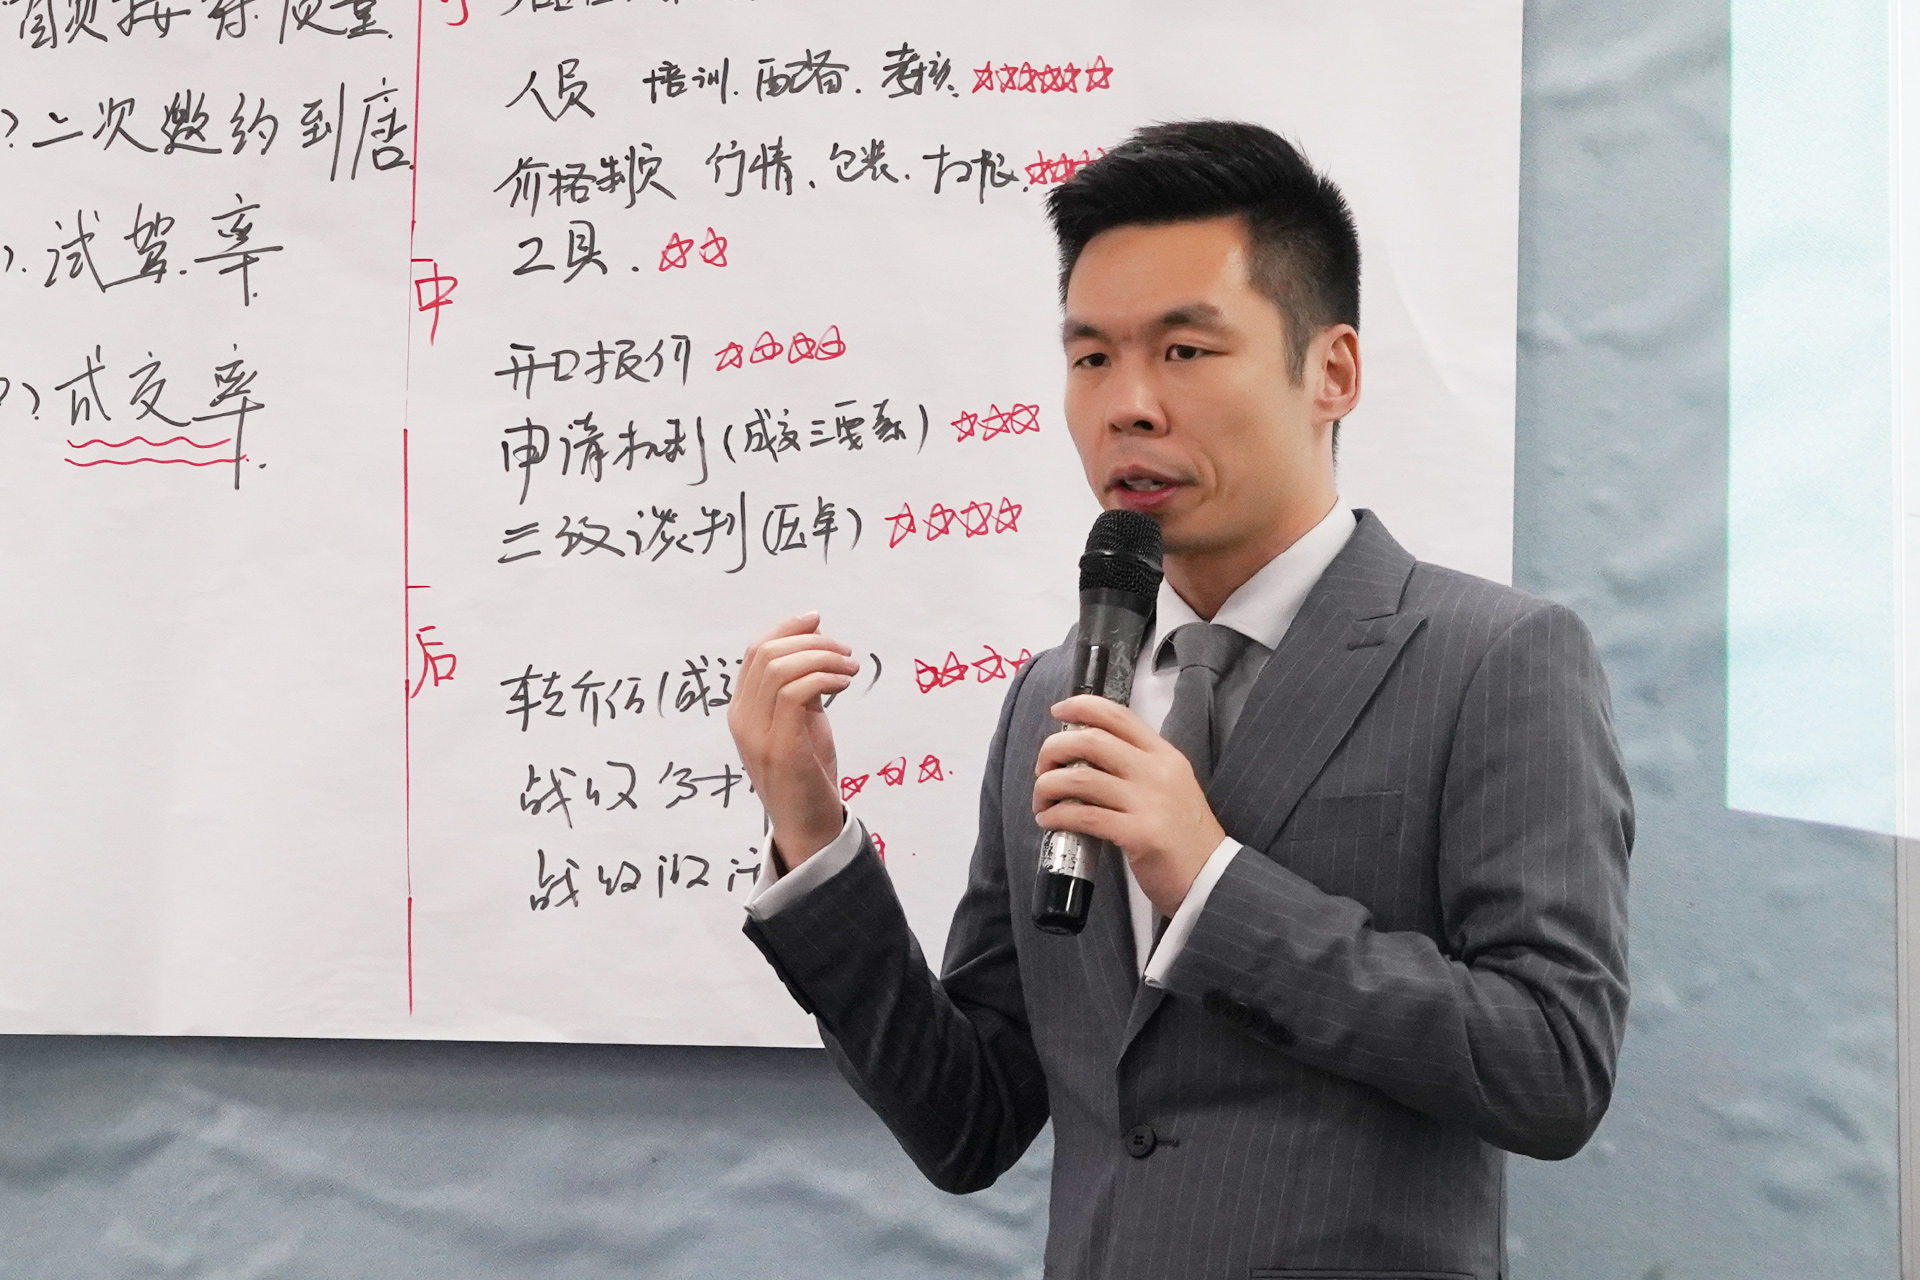 接待质量
二次邀约到店
试驾率
成交率
中
后
人员 培训、配备、考核
价格制定 行情、包装、
工具
开口报价
申请权利(成交三要素)
三级谈判(压单)
转介绍(成交
战败分析
战败